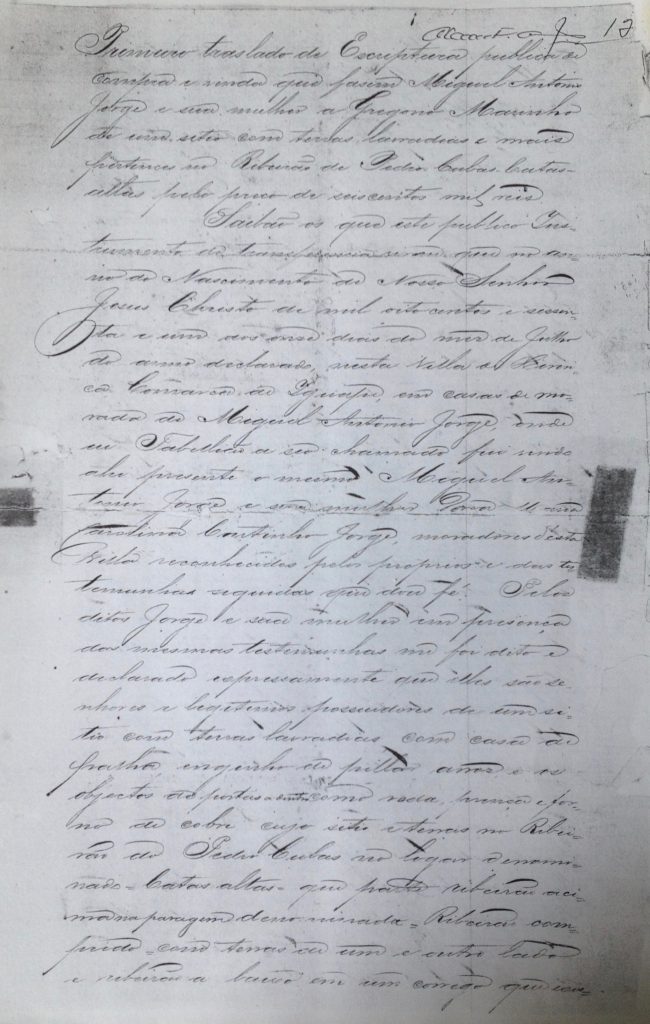 12
Primeiro traslado de Escriptura publica de
compra e venda que fasem Miguel Antonio
Jorge e sua mulher a Gregorio Marinho
de um sitio com terras lavradias e mais
pertences no Ribeirão de Pedro Cubas Catas-
altas pelo preço de seiscentos mil reis
Saibão os que este publico Ins-
trumento de virem que no an-
no do Nascimento de Nosso Senhor
Jesus Christo de mil oito centos e sessen-
ta e um aos onse dias do mez de Julho
do anno declarado, nesta Villa de
Comarca de Iguape, em casas de mo-
rada de Miguel Antonio Jorge, onde
eu Tabellião a seo chamado fui vindo
ahi presente o mesmo Miguel An-
tonio Jorge e sua mulher Dona
Carolina Coutinho Jorge, moradores d'esta
Villa reconhecidos pelos proprios e das tes
temunhas seguidas que dou fé. Pelos
ditos Jorge e sua mulher em presença
das mesmas testemunhas me foi dito e
declarado expressamente que elles são se-
nhores e legitimos possuidores de um si-
tio com terras lavradias com casa de
palha engenho de pillar arroz e os
objectos como roda, prença e for-
no de cobre cujo sitio e terras no Ribei-
rão do Pedro Cubas no lugar denomi-
nado = Catas altas = que parte ribeirão aci-
ma na paragem denominada = Ribeirão com-
prido = com terras de um e outro lado
e ribeirão a baixo em um corrego que